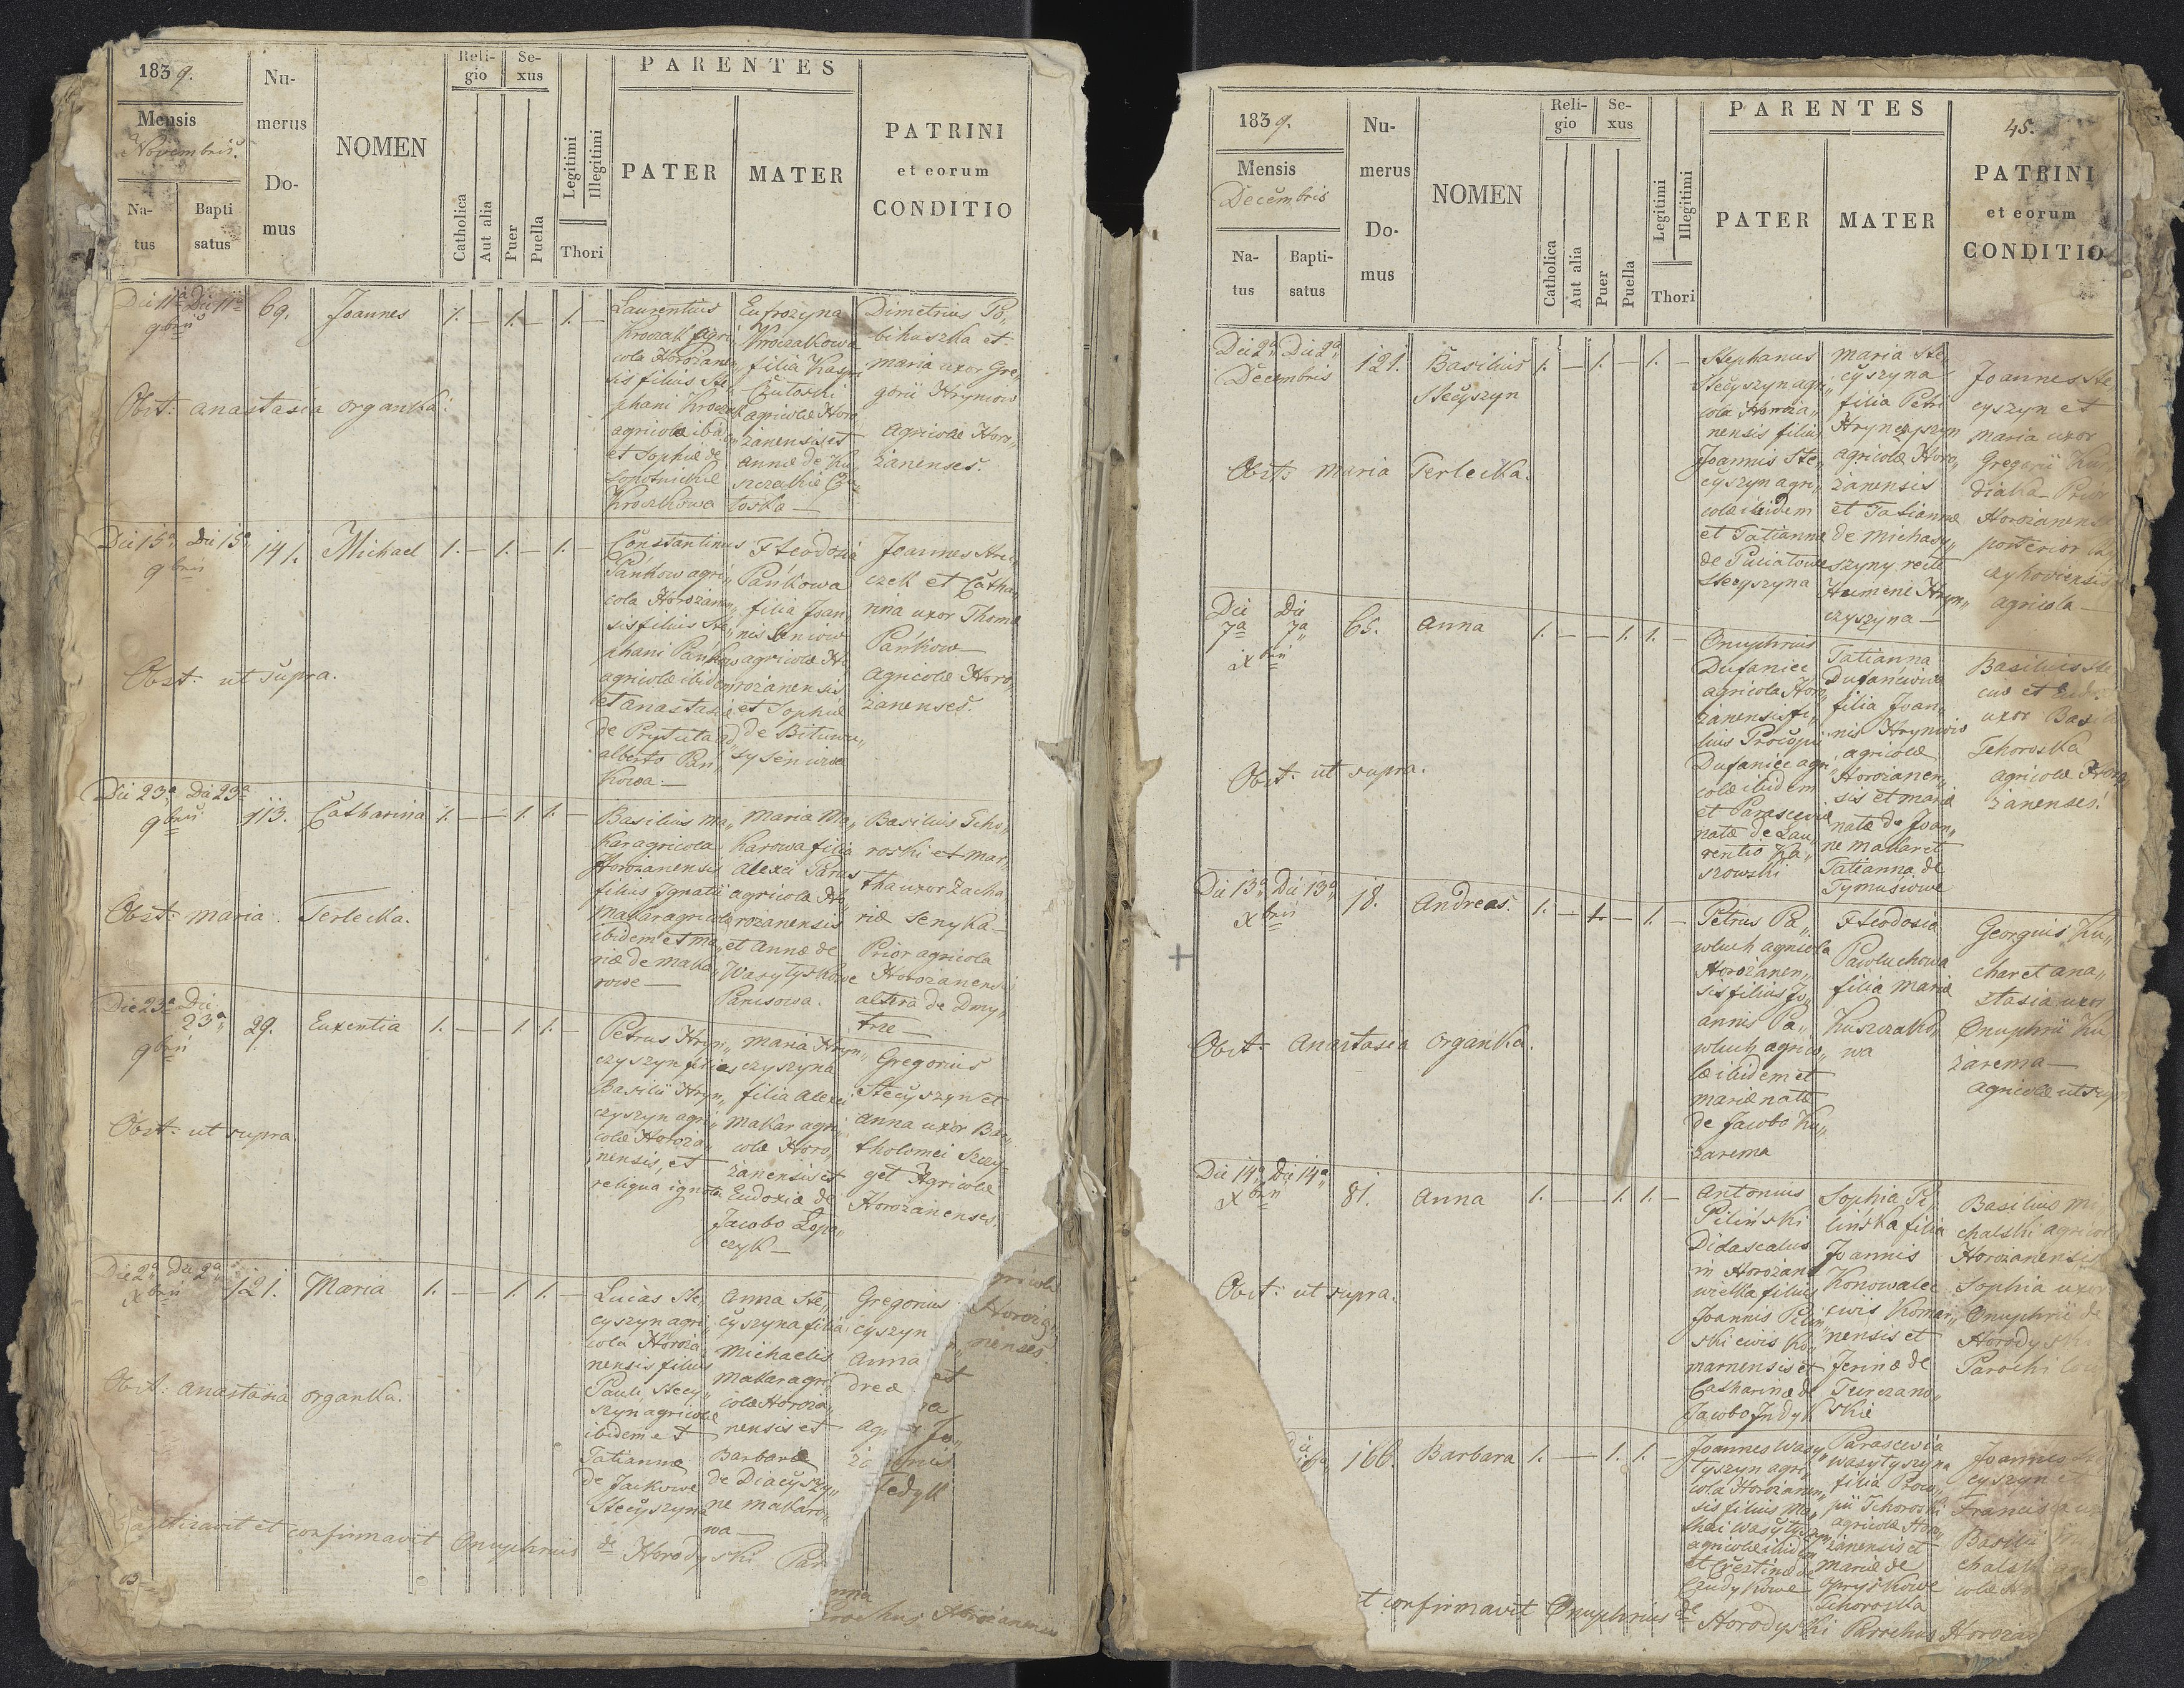 1839.
Mensis
Novembris.
Na-
tus
Bapti
satus
Nu-
merus
Do-
mus
NOMEN
Reli-
gio
Catholica
Aut alia
Se-
xus
Puer
Puella
Legitimi
Illegitimi
Thori
PARENTES
PATER
MATER
PATRINI
et eorum
CONDITIO
Die 11a Die 11a
9bris
69.
Joannes
1. — 1. — 1. —
Laurentius
Kroczak agri„
cola Horożanen„
sis filius Ste„
phani Kroczak
agricolæ ibid
et Sophiæ de
Kroczkowa
Eufrozyna
Kroczakowa
filia Kaspri
agricolæ Horo
żanensis et
Annæ de Ku„
toska —
Dimetrius Po„
bihuszka et
Maria uxor Gre„
gorii Hryniow
Agricolæ Horo„
żanenses.
Obst: Anastasia Organka.
Die 15a Die 15a
9bris
141.
Michael
1. — 1. — 1. —
Constantinus
Pańkow agri„
cola Horożanen„
sis filius Ste„
phani Pańkow
agricolæ ibidem
et Anastasiæ
alberto Pań„
kowa —
Fteodosia
Pańkowa
filia Joan„
nis Seniow
agricolæ Ho„
rożanensis
et Sophiæ
de Bituwu„
Joannes
czek et Catha„
rina uxor Thomæ
Pańkow —
Agricolæ Horo„
żanenses.
Obst: ut supra.
Die 23a Die 23a
9bris
113.
Catharina
1. — — 1. 1. —
Basilius Ma„
kar agricola
Horożanensis
filius Ignatii
Makar agricolæ
ibidem et Ma„
riæ de Maka„
rowe —
Maria Ma„
karowa filia
Alexii Panis
agricolæ Ho„
rożanensis
et Annæ de
Wasylyszkowe
Panisowa.
Basilius Tcho„
roski et Mar„
tha uxor Zacha
riæ Senyka —
Prior agricola
Horożanensis
altera de Dmy„
trze —
Obst: Maria Terlecka.
Die 23a Die
23a
9bris
29.
Euxentia
1. — — 1. 1. —
Petrus Hryn„
czyszyn filius
Basilii Hryn„
czyszyn agri„
colæ Horoża„
nensis, et
reliqua ignota
Maria Hryn„
czyszyna
filia Alexii
Makar agri„
colæ Horo„
żanensis et
Eudoxiæ de
Jacobo Łopa„
czyk —
Gregorius
Stecyszyn et
Anna uxor Bar„
tholomei Szczy„
get Agricolæ
Horożanenses.
Obst: ut supra
Die 2a Die 2a
xbris
121.
Maria
1. — — 1. 1. —
Lucas Ste„
cyszyn agri„
cola Horoża„
nensis filius
Pauli Stecy„
szyn agricolæ
ibidem et
Tatiannæ
de Jackowe
Stecyszyna
Anna Ste„
cyszyna filia
Michaelis
Makar agri„
colæ Horoża„
nensis et
Barbaræ
de Diaczyszy„
ne Makaro„
wa —
Gregorius
cyszyn
Anna
dreæ
Horoża„
nenses.
et
Fedyk
Obst: Anastasia Organka.
Baptizavit et confirmavit Onuphrius de Horodyski Par
Parochus Horożanensis
1839.
Mensis
Decembris
Na-
tus
Bapti-
satus
Nu-
merus
Do-
mus
NOMEN
Reli-
gio
Catholica
Aut alia
Se-
xus
Puer
Puella
Legitimi
Illegitimi
Thori
PARENTES
PATER
MATER
45.
PATRINI
et eorum
CONDITIO
Die 2a Die 2a
Decembris
121.
Basilius
Stecyszyn
1. — 1. — 1. —
Stephanus
Stecyszyn agri„
cola Horoża„
nensis filius
Joannis Ste„
cyszyn agri„
colæ ibidem
et Tatiannæ
Stecyszyna
Maria Ste„
cyszyna
filia Petri
Hrynczyszyn
agricolæ Horo„
żanensis
et Tatiannæ
de Michas„
szyny recte
Humeni Hryn„
czyszyna —
Joannes Ste„
cyszyn et
Maria uxor
Gregorii
Prior
posterior
agricola —
Obst: Maria Terlecka.
Die Die
7a 7a
xbris
65.
Anna
1. — — 1. 1. —
Onuphrius
Dufaniec
agricola Horo„
żanensis fi„
lius Procopii
Dufaniec agri„
colæ ibidem
et Parasceviæ
natæ de Lau„
rentio
Tatianna
Dufańciwa
filia Joan„
nis Hryniow
agricolæ
Horożanen„
sis et Mariæ
natæ de Joan„
ne Makar et
Tatianna de
Tymusiowe
Basilius
uxor
Tchoroska
agricolæ Horo„
żanenses.
Obst: ut supra.
Die 13a Die 13a
xbris
18.
Andreas.
1. — 1. — 1. —
Petrus Pa„
wluch agricola
Horożanen„
sis filius Jo„
annis Pa„
wluch agrico„
læ ibidem et
Mariæ natæ
de Jacobo Ku„
zarema
Fteodosia
Pawluchowa
filia Mariæ
Kuszczako„
wa
Georgius Ku„
char et Ana„
stasia uxor
Onuphrii Ku
zarema —
Agricolæ ut supra
Obst: Anastasia Organka.
Die 14a Die 14a
xbris
81.
Anna
1. — — 1. 1. —
Antonius
Piliński
Didascalus
in Horożana
wielka filius
Joannis Piliń„
ski civis Ko„
marnensis et
Catharinæ de
Jacobo Indyk
Sophia Pi„
lińska filia
Joannis
Konowalec
civis Komar„
nensis et
Irenæ de
Turczano„
skie
Basilius Mi„
chalski agricola
Horożanensis
Sophia uxor
Onuphrii de
Horodyski
Parochi
Obst: ut supra.
166.
Barbara
1. — — 1. 1. —
Joannes Wasy„
tyszyn agri„
cola Horożanen„
sis filius Ma„
thæi Wasytyszyn
agricolæ ibidem
et
Parascevia
Wasytyszyna
filia Proco„
pii Tchoroski
agricolæ Horo„
żanensis et
Mariæ de
Tchoroska
Joannes
cyszyn et
Francisca
Basilii
chalski
t confirmavit Onuphrius de Horodyski Parochus Horożan